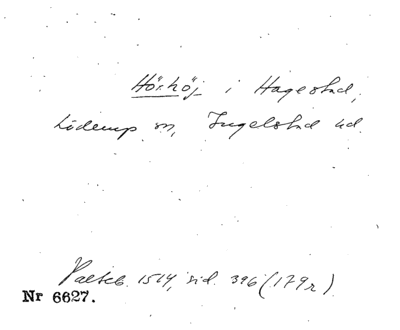 Hörhöj i Hagestad,
Löderup sn, Ingelstad hd.
Palteb. 1514, sid. 396 (179r).
Nr 6627.